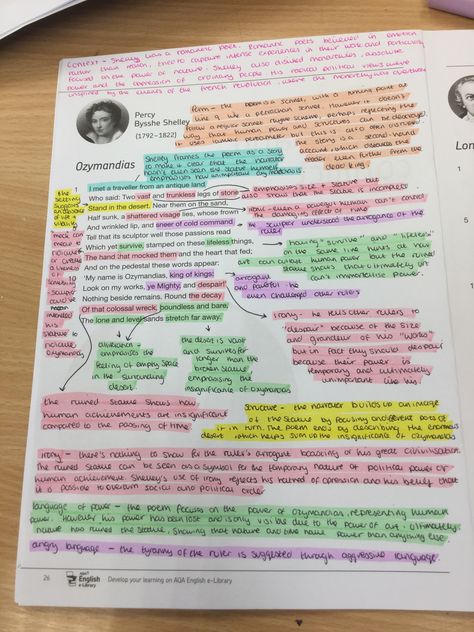 Context - Shelley was a romantic poet. Romantic poets believed in emotion
rather than reason, tried to capture intense experiences in their work and particularly
focused on the power of nature. Shelley also disliked monarchies, absolute
power and the oppression of ordinary people. His radical political views were
inspired by the events of the French revolution, where the monarchy was overthrown
Percy
Bysshe Shelley
(1792–1822)
form - the poem is a sonnet, with a turning point at
line 9 like a petrarchan sonnet. However it doesn't
follow a regular sonnet rhyme scheme, perhaps reflecting the
way that human power and structures can be destroyed.
It uses iambic pentameter but this is also often disrupted
the story is a second-hand
account, which distances the
reader even further from the
dead king.
Shelley frames the poem as a story
to make it clear that the narrator
hasn't even seen the statue himself
emphasises how unimportant
Ozymandias
1 I met a traveller from an antique land
Who said: Two vast and trunkless legs of stone
Stand in the desert. Near them on the sand,
Half sunk, a shattered visage lies, whose frown
And wrinkled lip, and sneer of cold command
Tell that its sculptor well those passions read
Which yet survive, stamped on these lifeless things,
The hand that mocked them and the heart that fed;
And on the pedestal these words appear:
'My name is Ozymandias, king of kings:
Look on my works, ye Mighty, and despair!'
Nothing beside remains. Round the decay
Of that colossal wreck, boundless and bare,
The lone and level sands stretch far away.'
the
setting
suggests
emphasises size + stature but
also show that the statue is incomplete
irony - even a powerful human can't control
the damaging effects of time
the sculptor understood the arrogance of the
ruler
having "survive" and "lifeless"
on the same line hints at how
art can outlast human power but the ruined
statue shows that ultimately art
can't immortalise power.
arrogant
and powerful - he
even challenged other rulers
irony - he tells other rulers to
"despair" because of the size
and grandeur of his "works"
but in fact they should despair
because their power is
temporary and ultimately
unimportant like his
alliteration -
emphasises the
feeling of empty space
in the surrounding
desert
the desert is vast
and survives far
longer than the
broken statue,
emphasising the
insignificance of Ozymandias
the ruined statue shows how
human achievements are insignificant
compared to the passing of time.
structure - the narrator builds up an image
of the statue by focusing on different parts of
it in turn. The poem ends by describing the enormous
desert which helps sum up the insignificance of Ozymandias
irony - there's nothing to show for the ruler's arrogant boasting of his great civilisation.
The ruined statue can be seen as a symbol for the temporary nature of political power or
human achievement. Shelley's use of irony reflects his hatred of oppression and his belief that
it is possible to overturn social and political circle
language of power - the poem focuses on the power of Ozymandias, representing human
power. However his power has been lost and is only visible due to the power of art. Ultimately
nature has ruined the statue, showing that nature and time have power than anything else
angry language - the tyranny of the ruler is suggested through aggressive language.
26 AQA English e-Library Develop your learning on AQA English e-Library
Lon
1
5